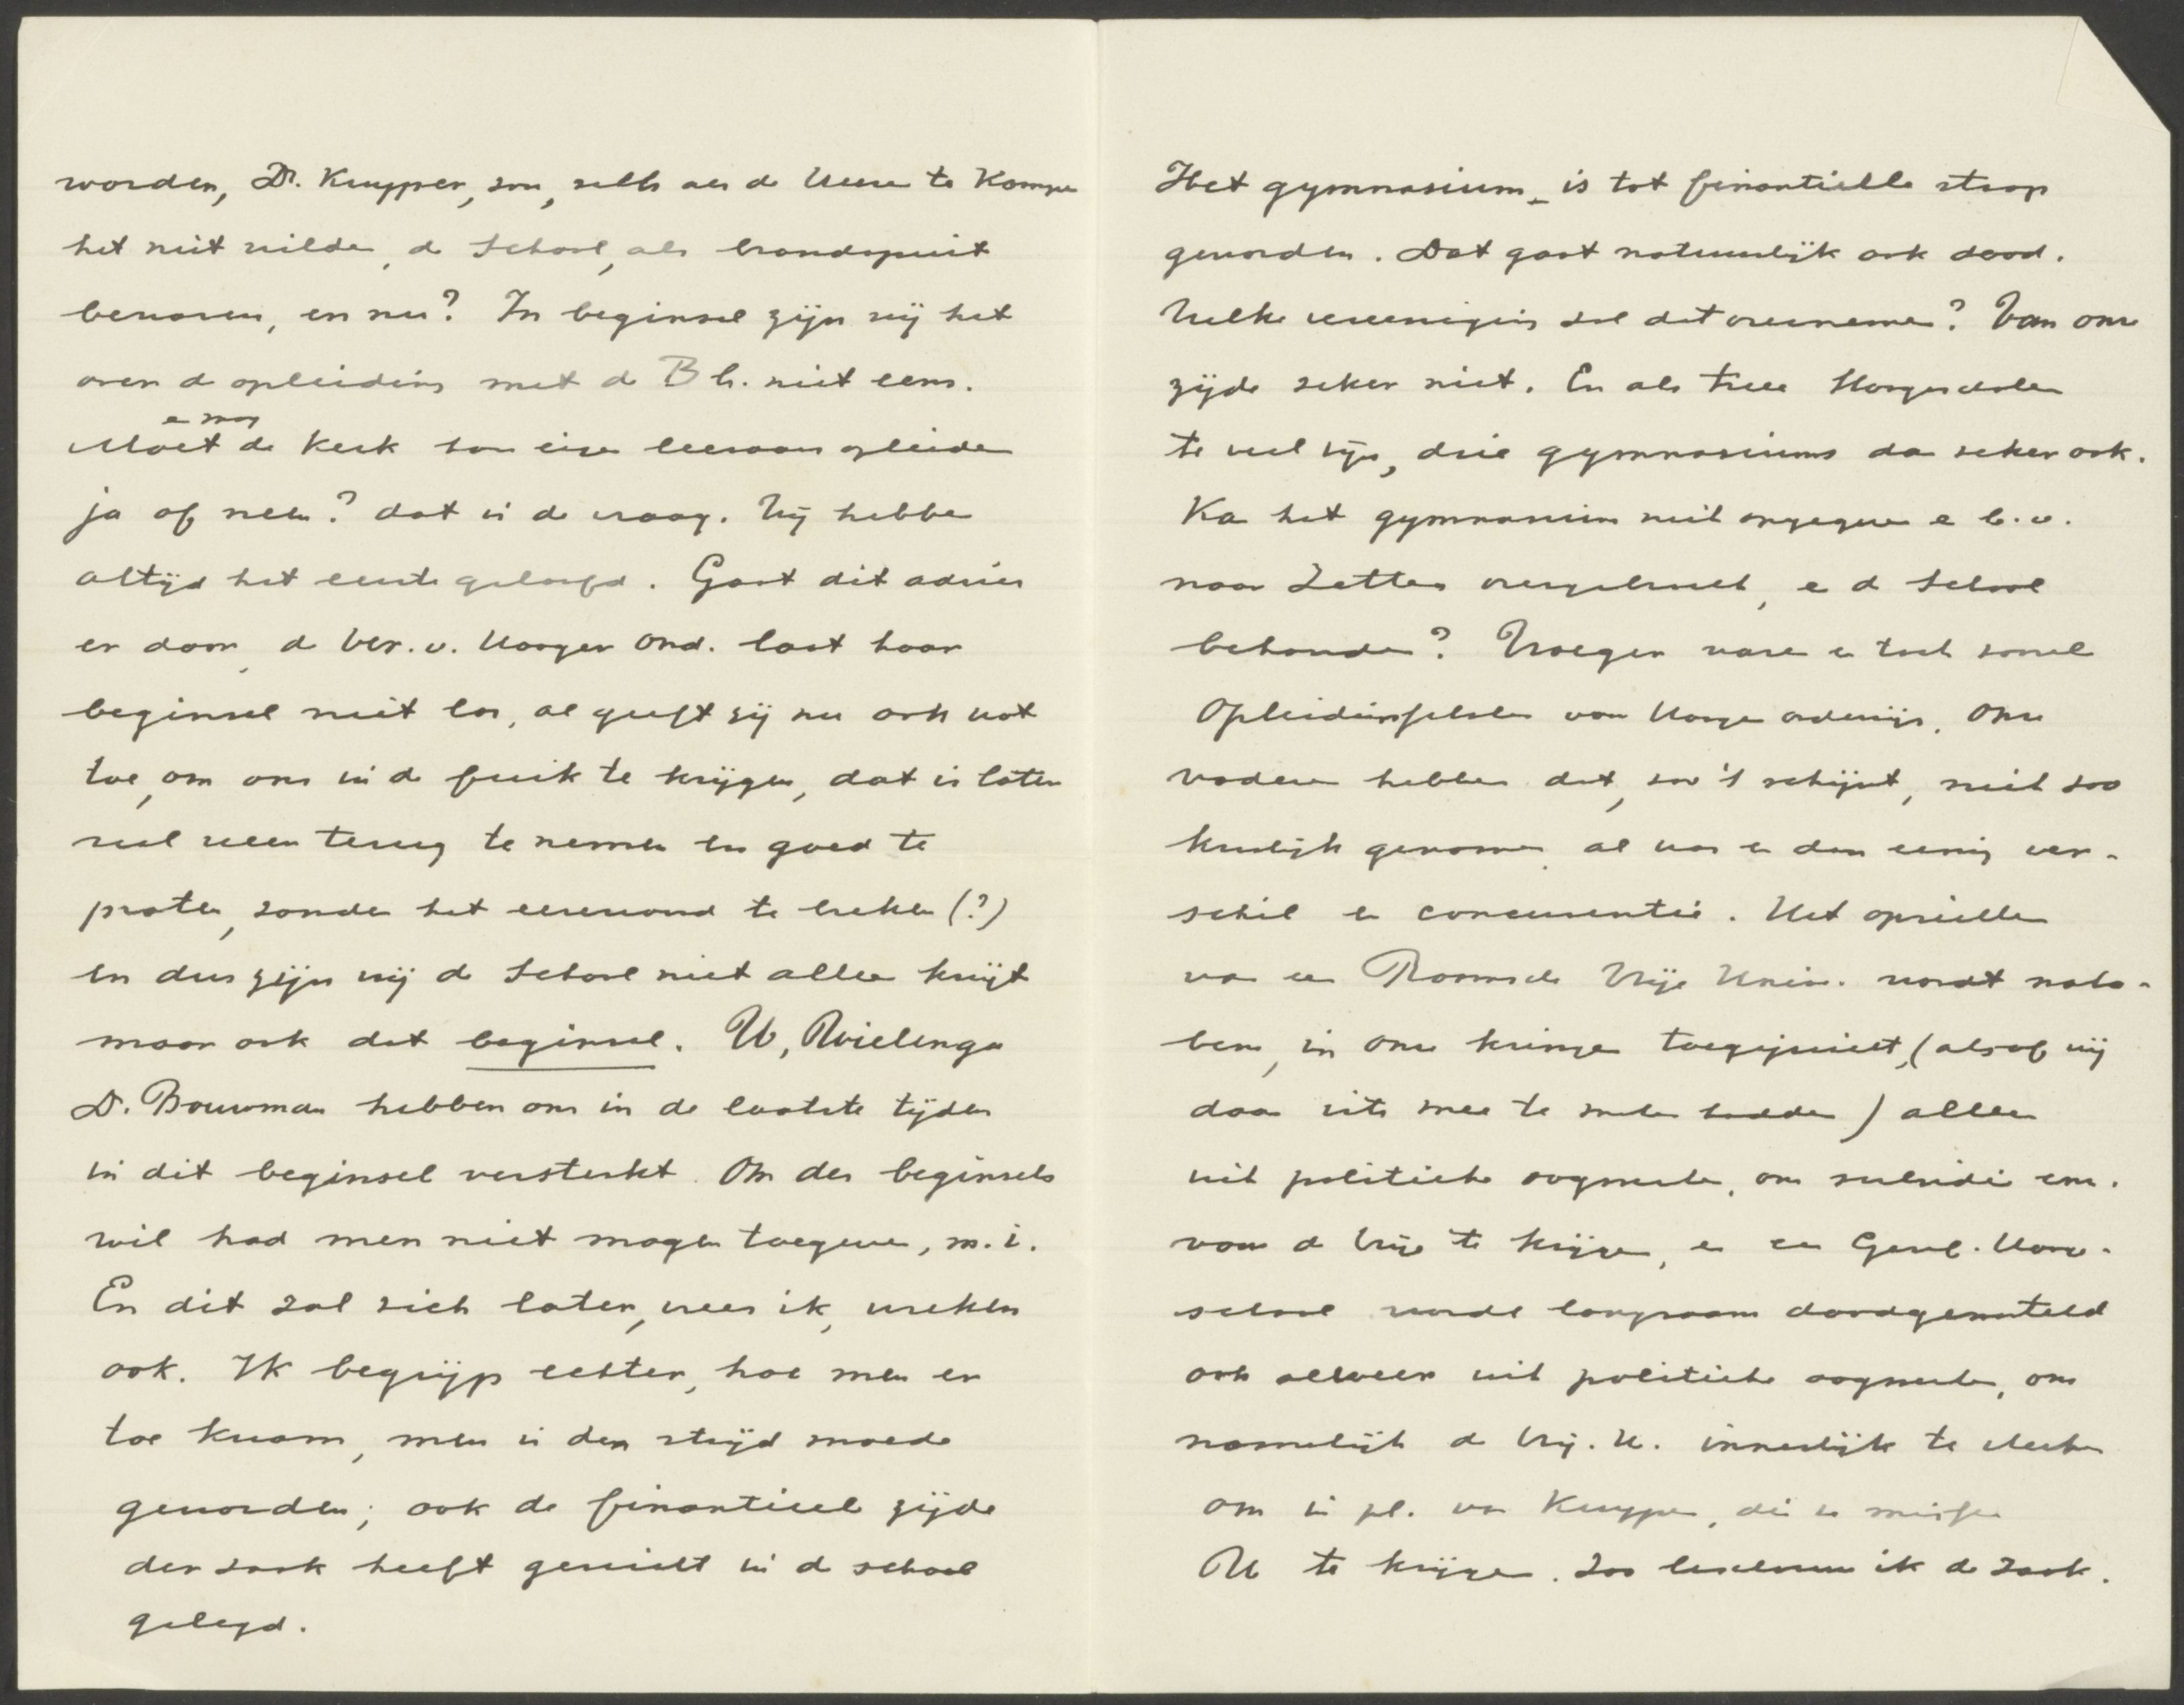 worden, Dr. Kuyper, zou, zelfs als de Heeren te Kampen
het niet wilden, de School, als brandspuit
bewaren, en nu? In beginsel zijn wij het
over de opleiding met de B b. niet eens.
en mag
Moet de Kerk haar eigen leeraars opleiden
ja of neen? dat is de vraag. Wij hebben
altijd het eerste geloofd. Gaat dit advies
er door, de Ver. v. Hooger Ond. laat haar
beginsel niet los, al geeft zij nu ook wat
toe, om ons in de fuik te krijgen, dat is later
wel weer terug te nemen en goed te
praten, zonder het eerewoord te breken (?)
en dus zijn wij de School niet alleen kwijt
maar ook dat beginsel. U, Wielenga
Dr. Bouwman hebben ons in de laatste tijden
in dit beginsel versterkt. Om des beginsels
wil had men niet mogen toegeven, m.i.
En dit zal zich later, vrees ik, wreken
ook. Ik begrijp echter, hoe men er
toe kwam, men is den strijd moede
geworden; ook de finantieele zijde
der zaak heeft gewicht in de schaal
gelegd.
Het gymnasium is tot finantieele strop
geworden. Dat gaat natuurlijk ook dood.
Welke vereeniging zal dat overnemen? Van onze
zijde zeker niet. En als twee Hoogescholen
te veel zijn, drie gymnasiums dan zeker ook.
Kan het gymnasium niet opgegeven en b.v.
naar Zetten overgebracht, en de School
behouden? Vroeger waren er toch zooveel
Opleidingsscholen van Hooger onderwijs. Onze
vaderen hebben dat, zoo 't schijnt, niet zoo
kwalijk genomen al was er dan eenig ver-
schil en concurrentie. Het oprichten
van een Roomsche Vrije Univ. wordt nota-
bene, in onze kringen toegejuicht, (alsof wij
daar iets mee te maken hadden) alleen
uit politieke oogmerken, om subsidie enz.
voor de Vrije te krijgen, en een Geref. Hooge-
school wordt langzaam doodgemarteld
ook alweer uit politieke oogmerken, om
namelijk de Vrij. U. innerlijk te sterken
om in pl. van Kuyper, die ze missen
U te krijgen. Zoo beschouw ik de zaak.